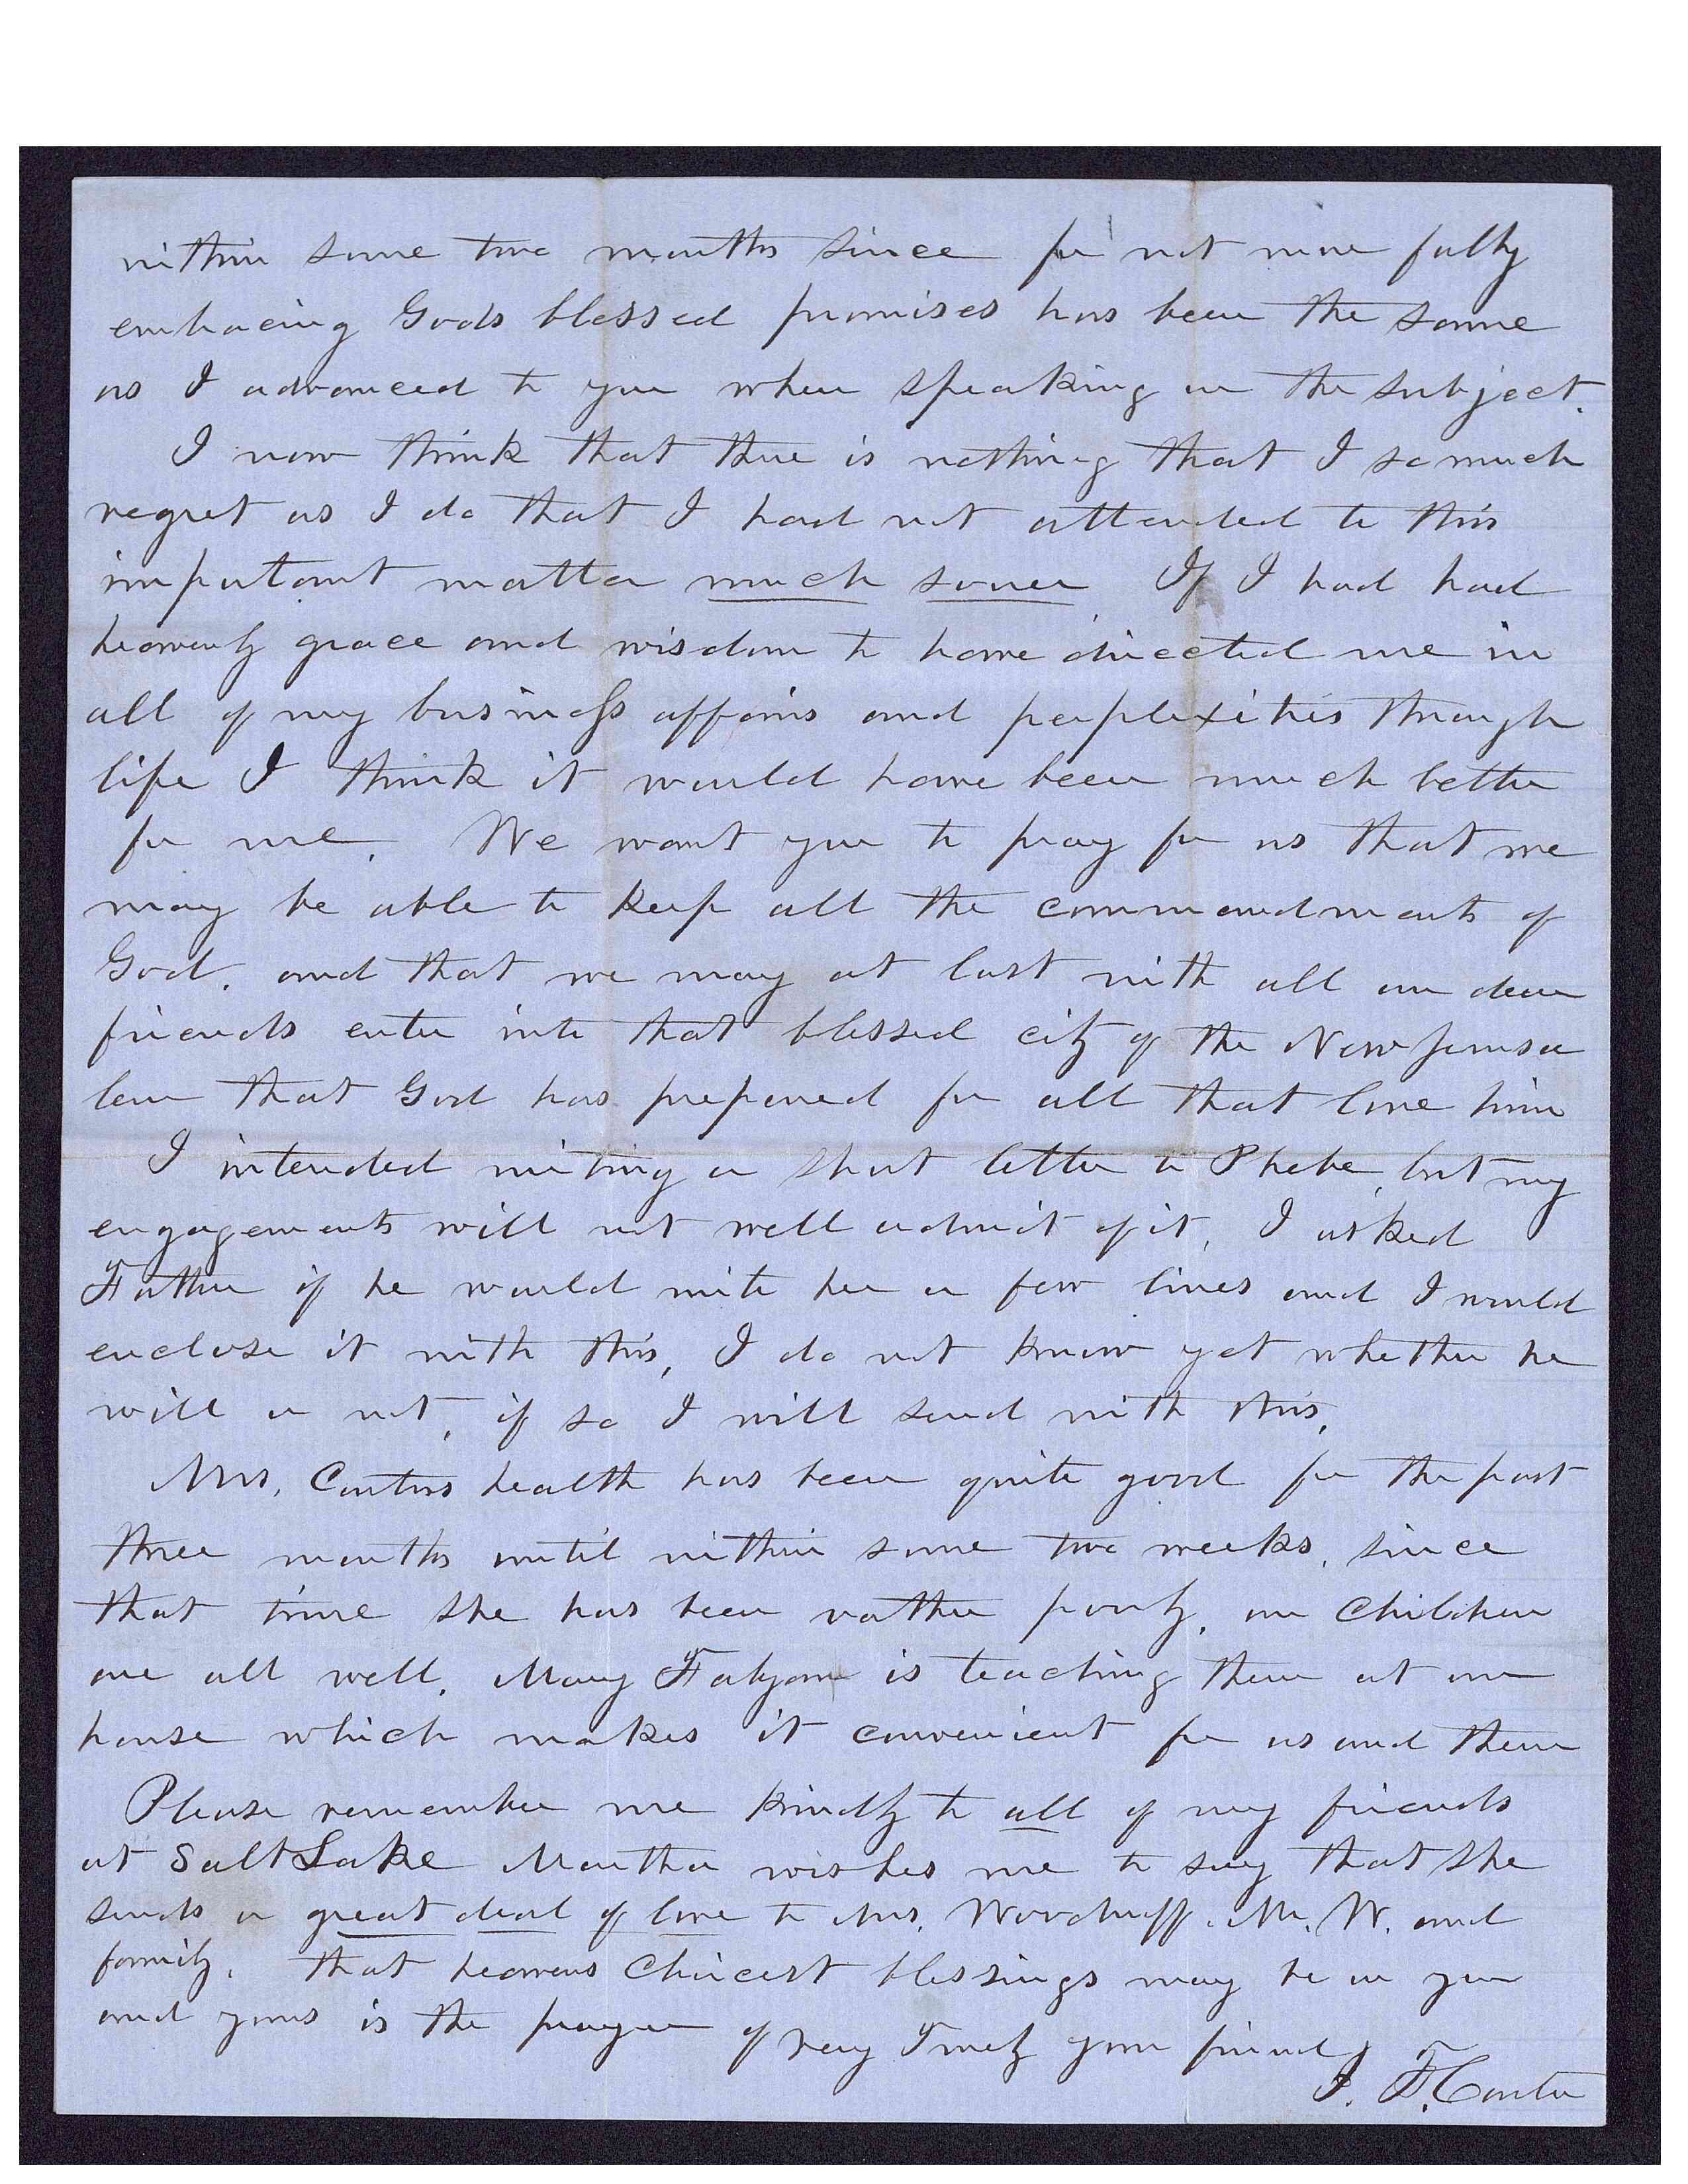 within some two months since for not more fully
embracing Gods blessed promises has been the same
as I advanced to you when speaking on the subject.
I now think that there is nothing that I so much
regret as I do that I had not attended to this
important matter much sooner. If I had had
heavenly grace and wisdom to have directed me in
all of my business affairs and perplexities through
life I think it would have been much better
for me. We want you to pray for us that we
may be able to keep all the commandments of
God. and that we may at last with all our dear
friends enter into that blessed city of the New Jerusa
lem that God has prepared for all that love him
I intended writing a short letter to Phebe, but my
engagements will not well admit of it, I asked
Father if he would write her a few lines and I would
enclose it with this, I do not know yet whether he
will or not, if so I will send with this,
Mrs. Carters health has been quite good for the past
three months until within some two weeks, since
that time she has been rather poorly, our Children
are all well. Mary Fabyan is teaching them at our
house which makes it convenient for us and them
Please remember me kindly to all of my friends
at Salt Lake Martha wishes me to say that she
sends a great deal of love to Mrs. Woodruff. Mr. W. and
family. that heavens Choicest blessings may be on you
and yours is the prayer of very Truly your friend
I. F. Carter